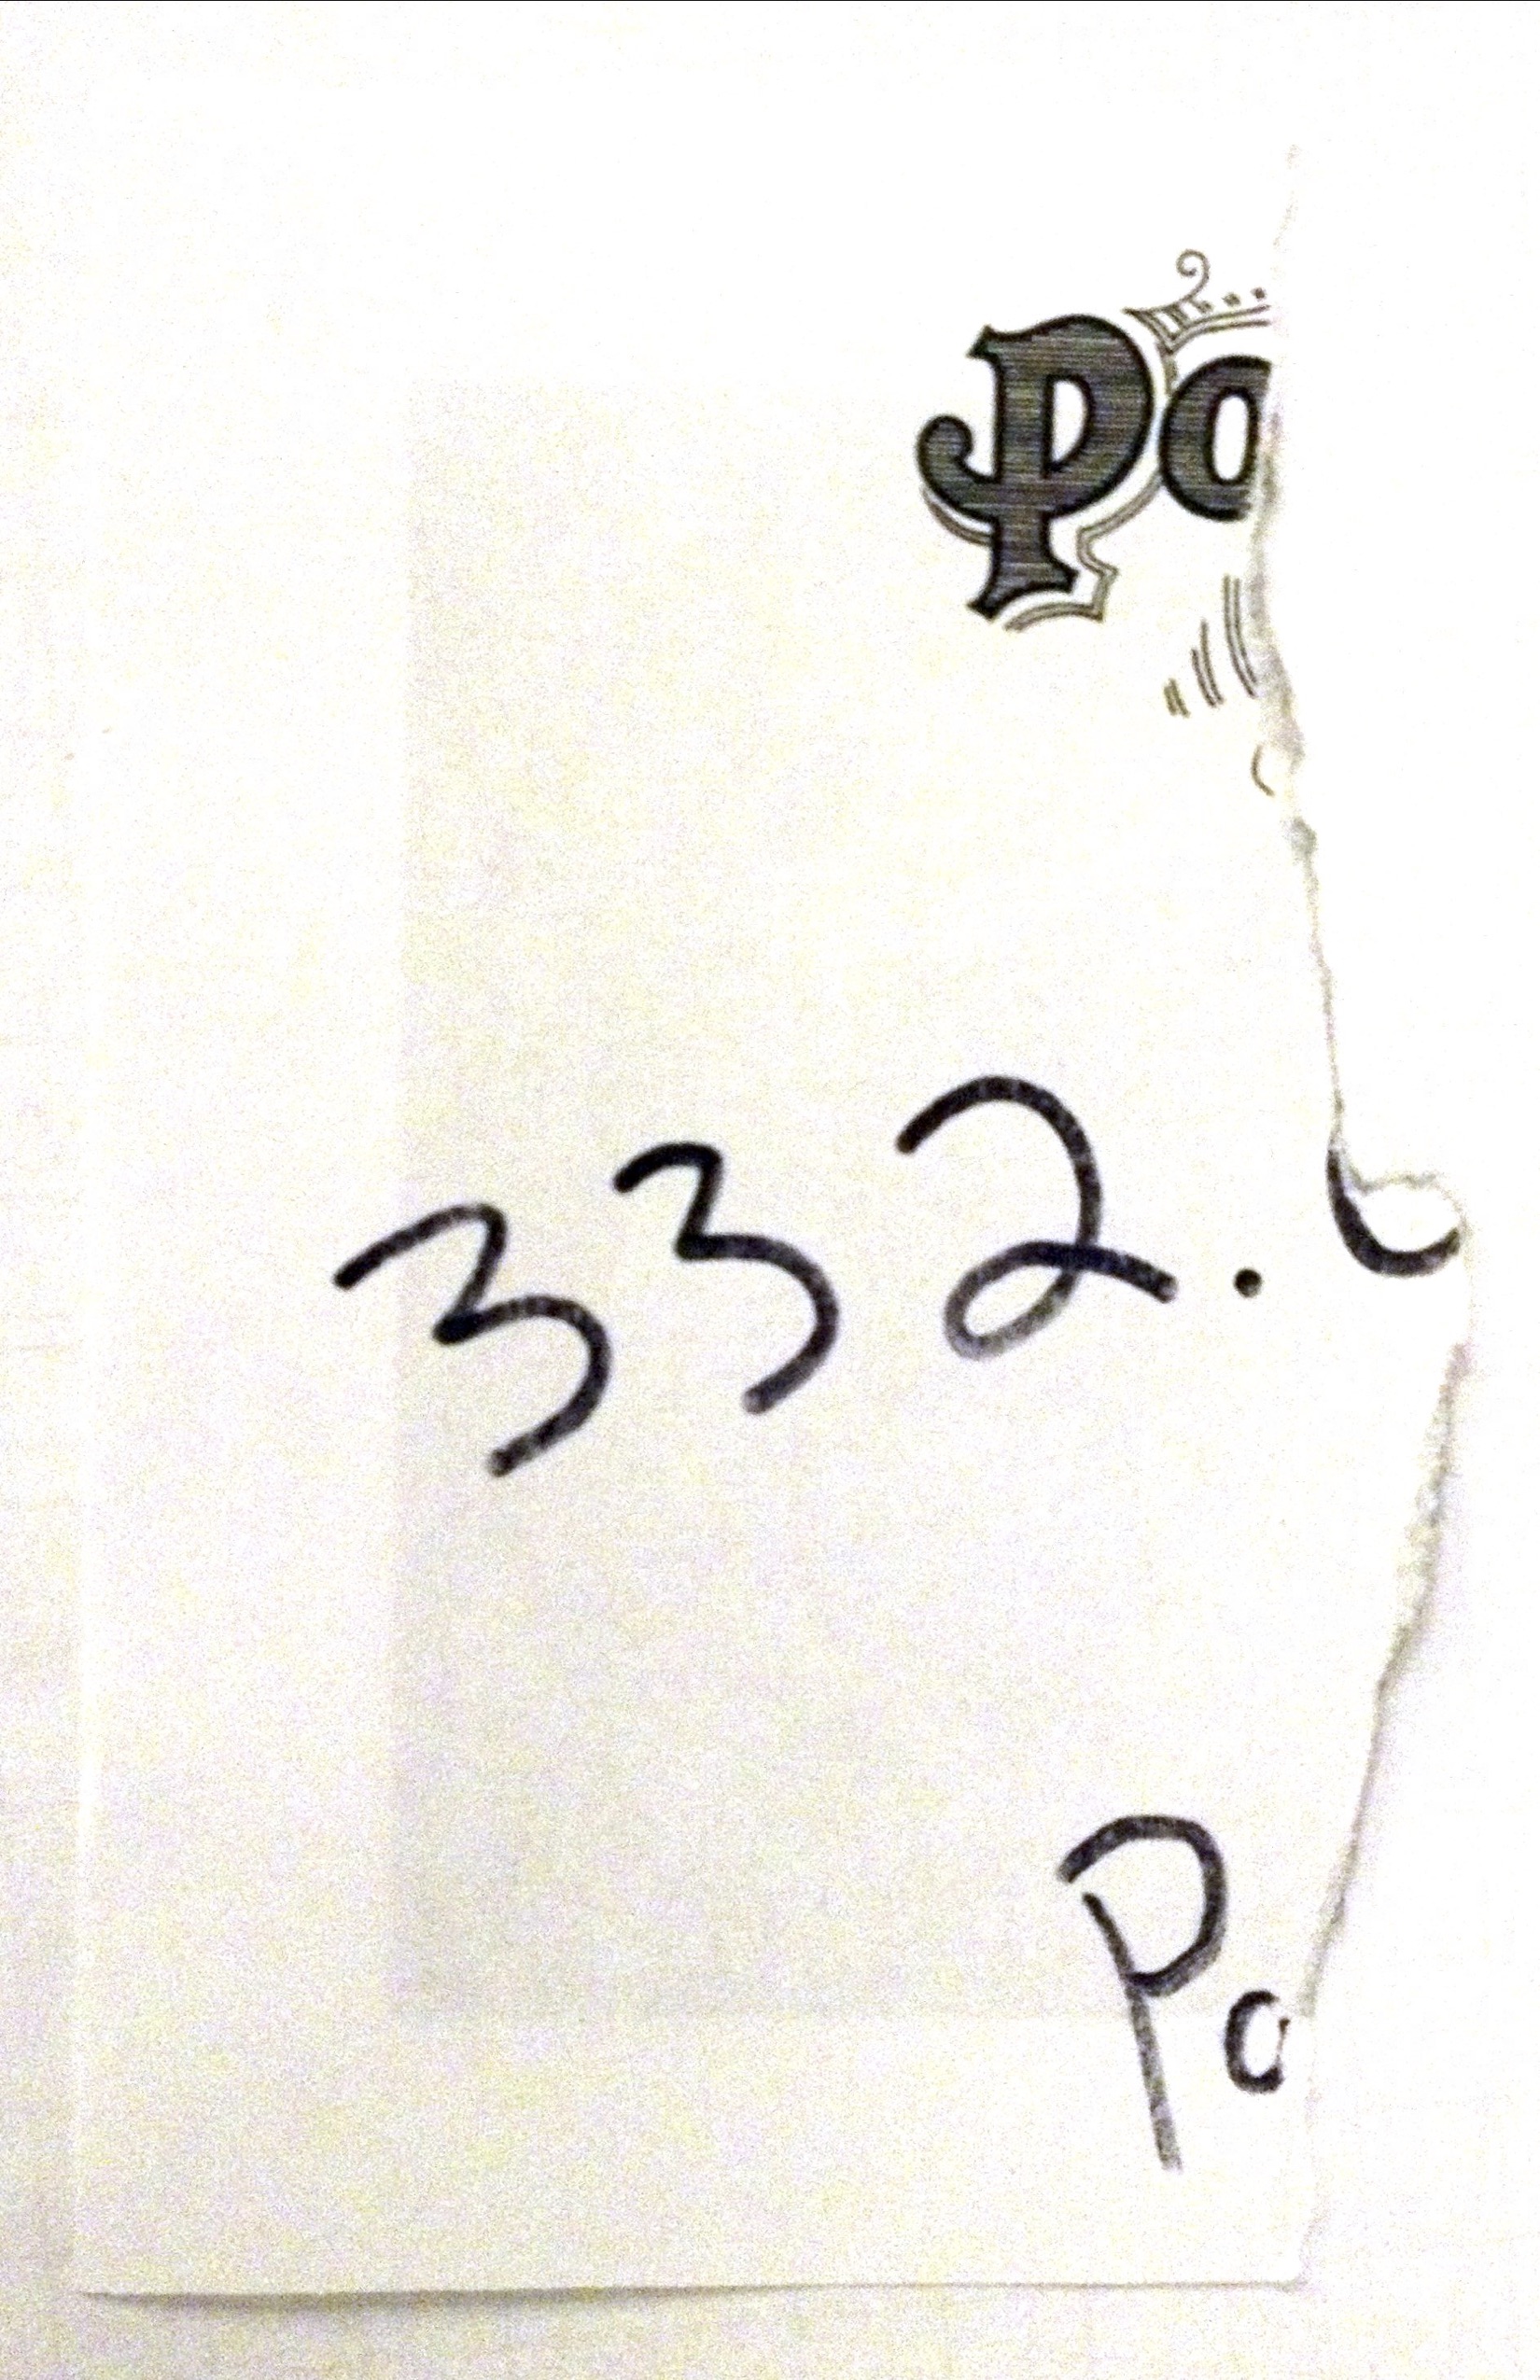 Po
332.
Po